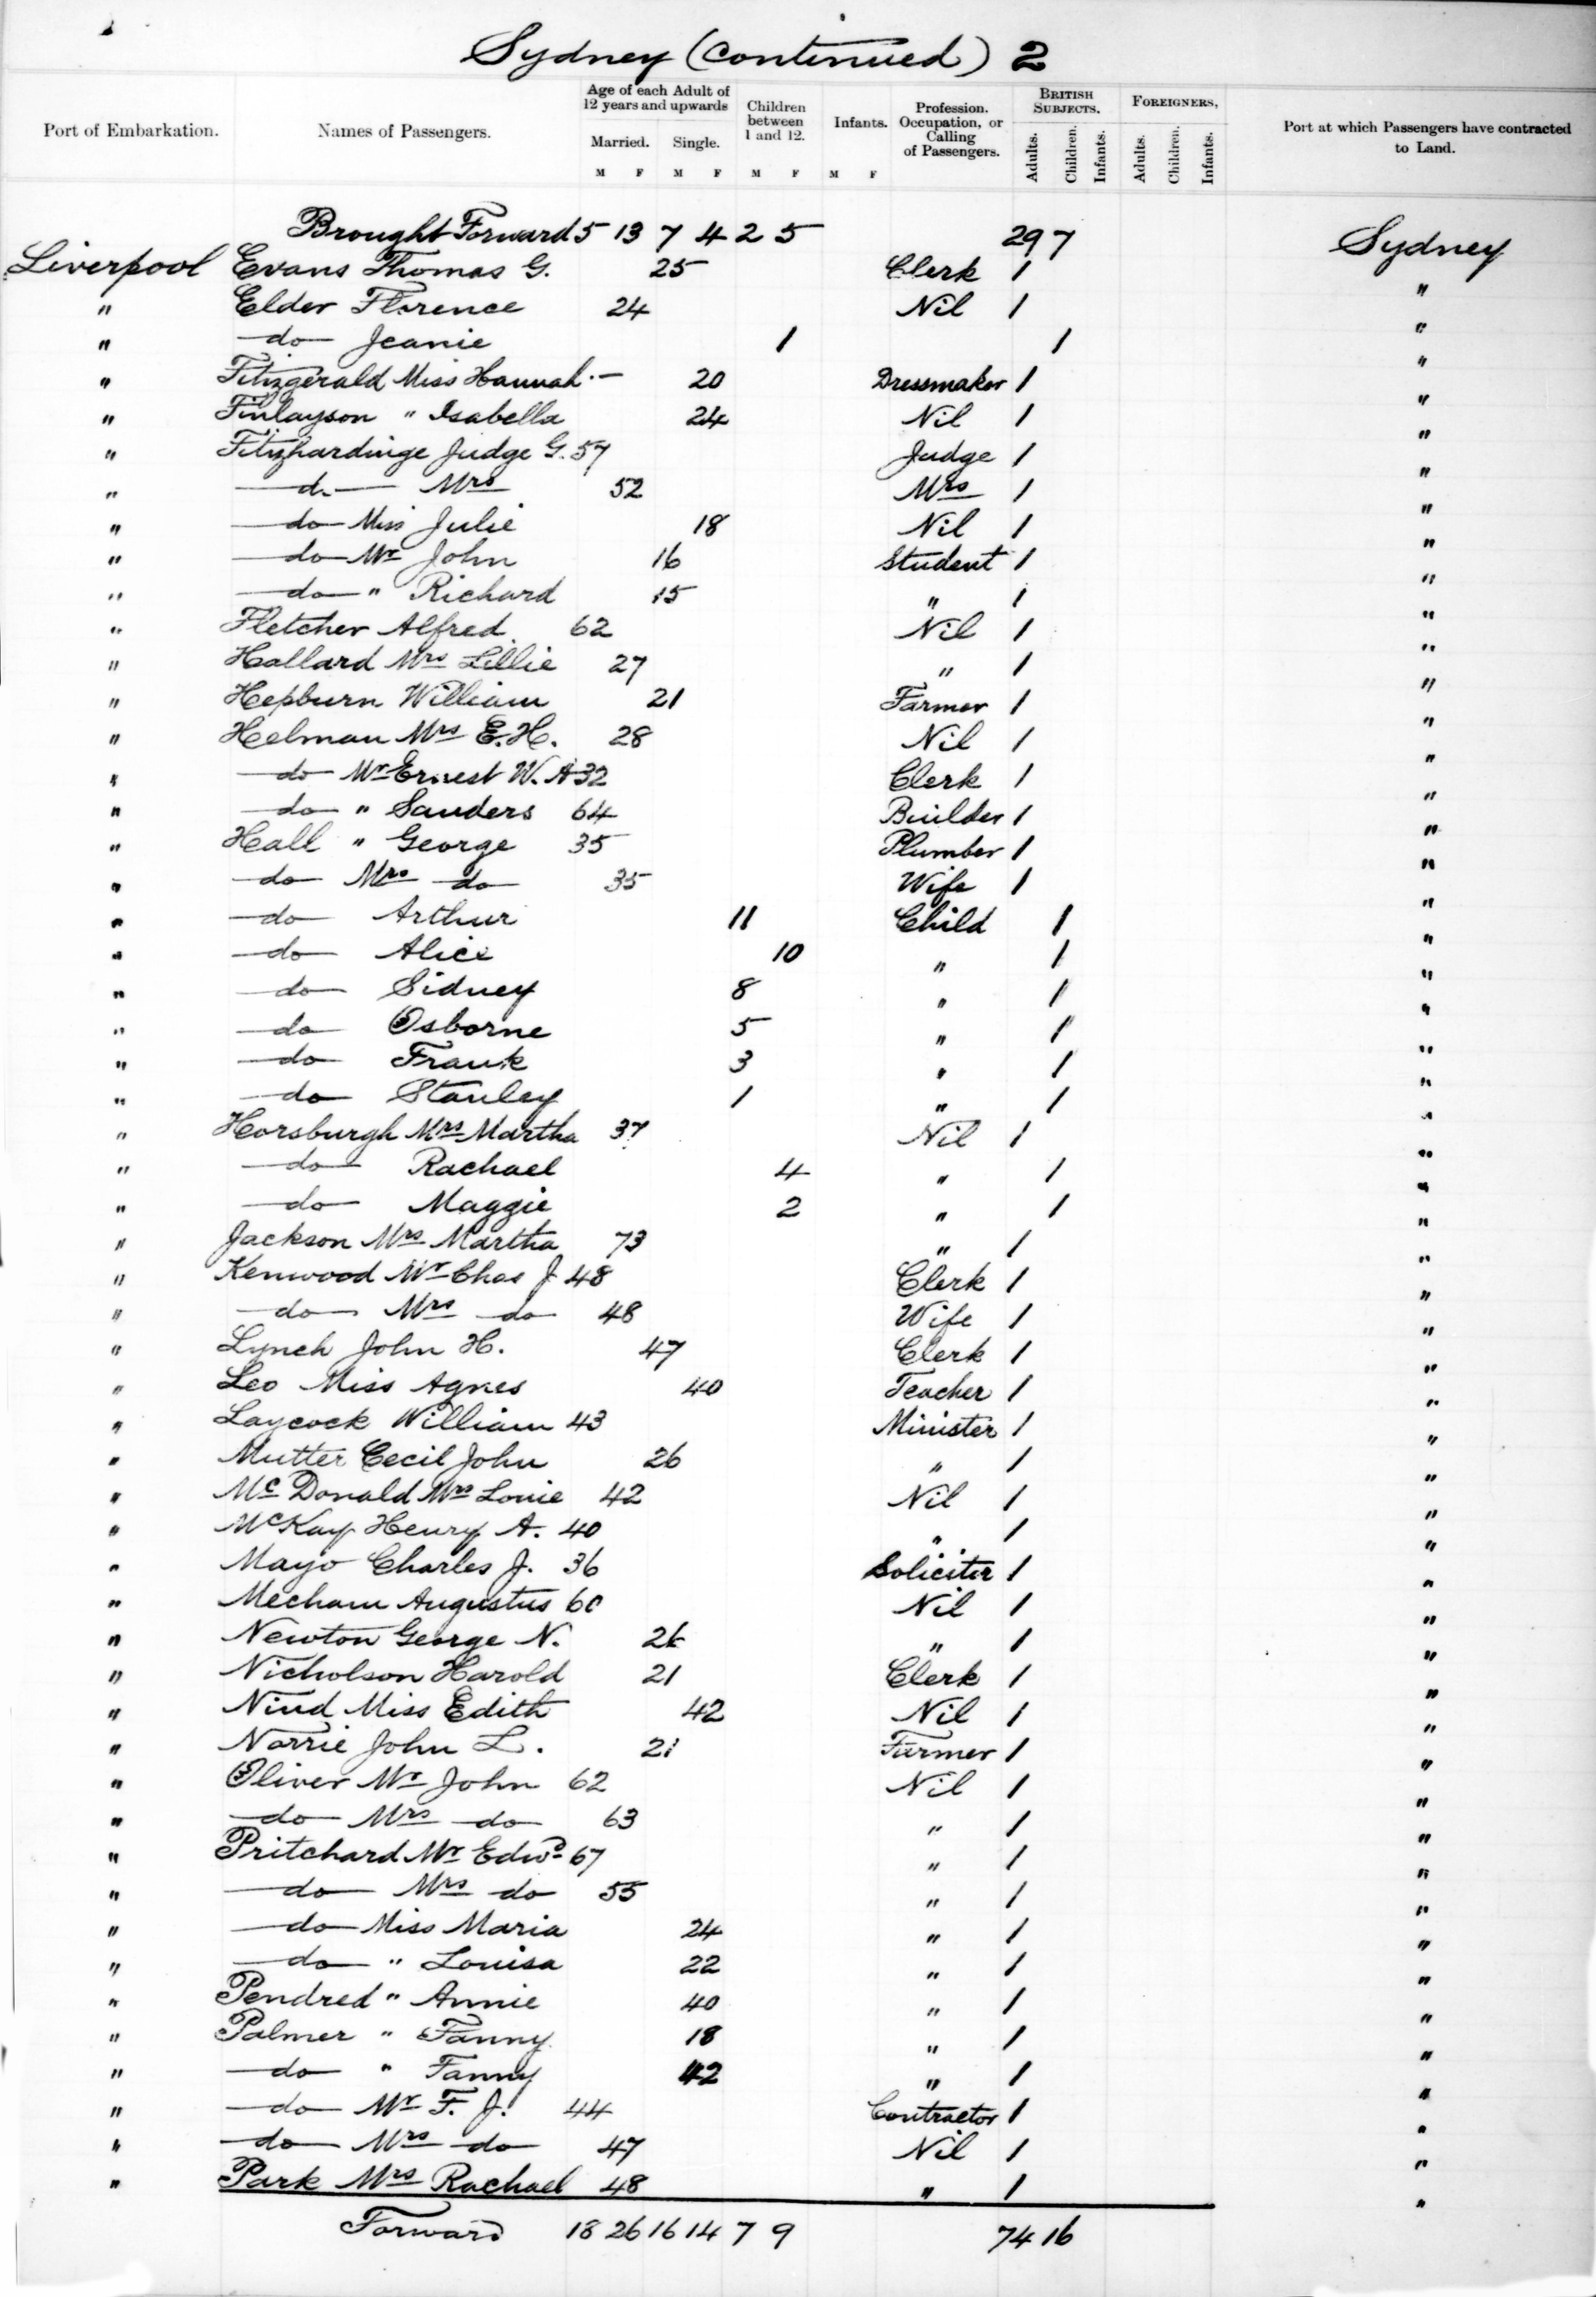 Sydney (continued) 2
Port of Embarkation. Names of Passengers. Age of each Adult of 12 years and upwards Married. M F Single. M F Children between 1 and 12. M F Infants. M F Profession. Occupation, or Calling of Passengers. BRITISH SUBJECTS. Adults. Children. Infants. FOREIGNERS, Adults. Children. Infants. Port at which Passengers have contracted to Land.
Brought Forward 5 13 7 4 2 5 29 7 Sydney
Liverpool Evans Thomas G. 25 Clerk 1 "
" Elder Florence 24 Nil 1 "
" do Jeanie 1 1 "
" Fitzgerald Miss Hannah 20 Dressmaker 1 "
" Finlayson " Isabella 24 Nil 1 "
" Fitzhardinge Judge G. 57 Judge 1 "
" do Mrs 52 Mrs 1 "
" do Miss Julie 18 Nil 1 "
" do Mr John 16 Student 1 "
" do " Richard 15 " 1 "
" Fletcher Alfred 62 Nil 1 "
" Hallard Mrs Lillie 27 " 1 "
" Hepburn William 21 Farmer 1 "
" Helman Mrs E. H. 28 Nil 1 "
" do Mr Ernest W. A 32 Clerk 1 "
" do " Sanders 64 Builder 1 "
" Hall " George 35 Plumber 1 "
" do Mrs do 35 Wife 1 "
" do Arthur 11 Child 1 "
" do Alice 10 " 1 "
" do Sidney 8 " 1 "
" do Osborne 5 " 1 "
" do Frank 3 " 1 "
" do Stanley 1 " 1 "
" Horsburgh Mrs Martha 37 Nil 1 "
" do Rachael 4 " 1 "
" do Maggie 2 " 1 "
" Jackson Mrs Martha 73 " 1 "
" Kenwood Mr Chas J 48 Clerk 1 "
" do Mrs do 48 Wife 1 "
" Lynch John H. 47 Clerk 1 "
" Leo Miss Agnes 40 Teacher 1 "
" Laycock William 43 Minister 1 "
" Mutter Cecil John 26 " 1 "
" McDonald Mrs Louie 42 Nil 1 "
" McKay Henry A. 40 " 1 "
" Mayo Charles J. 36 Soliciter 1 "
" Mecham Augustus 60 Nil 1 "
" Newton George N. " 1 "
" Nicholson Harold 21 Clerk 1 "
" Nind Miss Edith 42 Nil 1 "
" Norrie John L. 21 Farmer 1 "
" Oliver Mr John 62 Nil 1 "
" do Mrs do 63 " 1 "
" Pritchard Mr Edwd 67 " 1 "
" do Mrs do 55 " 1 "
" do Miss Maria 24 " 1 "
" do " Louisa 22 " 1 "
" Pendred " Annie 40 " 1 "
" Palmer " Fanny 18 " 1 "
" do " Fanny 42 " 1 "
" do Mr F. J. 44 Contractor 1 "
" do Mrs do 47 Nil 1 "
" Park Mrs Rachael 48 " 1 "
Forward 18 26 16 14 7 9 74 16